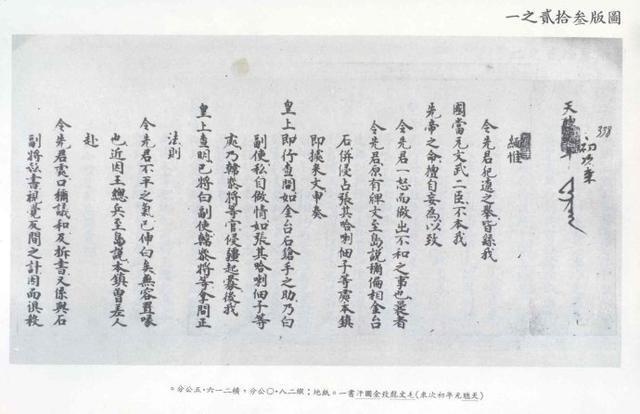 圖版叁拾貳之一
338
天
初次來
緬惟
令先君犯邊之舉皆緣我
國當元文武二臣不本我
先帝之命擅自妄為以致
令先君一忿而做出不和之事也者
令先君原有文至島說稱偏相金台
石併侵占張其哈喇佃子等處本鎮
即據來文申奏
皇上即行查問如金台石鎗手之助乃白
副使私自做情如張其哈喇佃子等
處乃韓將等官侵疆起釁後我
皇上查明已將白副使將等拿問正
法則
令先君不平之氣已伸白矣無容置喙
也近因王總兵至島說本鎮曾差人
赴
令先君處口稱議和及拆書又係與石
副將書視覺反間之計因而俱殺
(天聰元年初次來)毛文龍致金國汗書一。紙地；縱二八·〇公分，橫二一六·五公分。